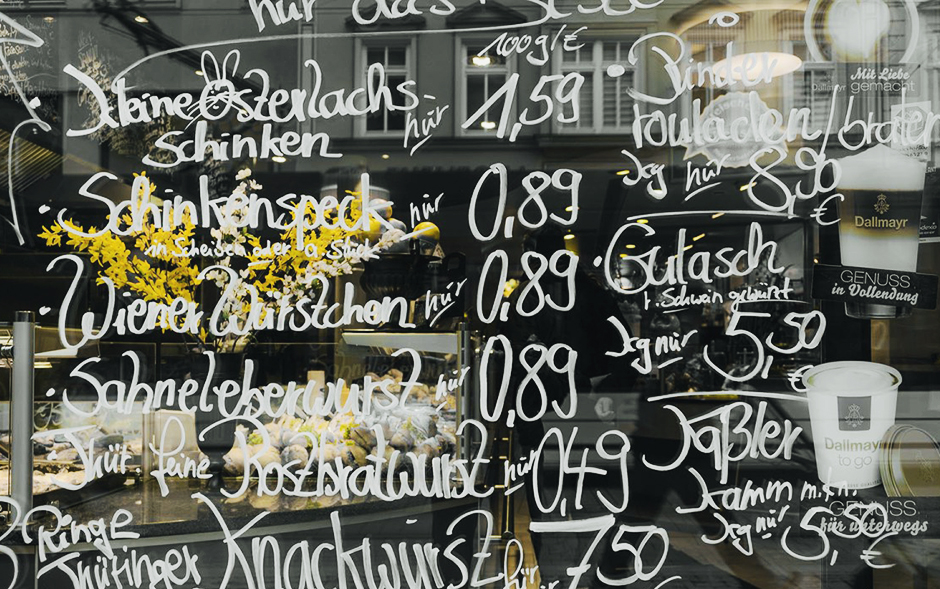 nur das Beste
100g/€
• Kleine Osterlachs-
schinken nur 1,59
• Schinkenspeck nur 0,89
in Scheiben oder a. Stück
• Wiener Würstchen nur 0,89
• Sahneleberwurst nur 0,89
Thür. feine Rostbratwurst nur 0,49
Ringe
Thüringer Knackwurst nur 7,50
• Rinder
rouladen/braten
kg nur 8,90
€
• Gulasch
v. Schwein gewürzt
kg nur 5,50
€
Kaßler
Kamm m. Kn.
kg nur 5,50
€
Mit Liebe
gemacht
Dallmayr
GENUSS
in Vollendung
Dallmayr
to go
GENUSS
für unterwegs